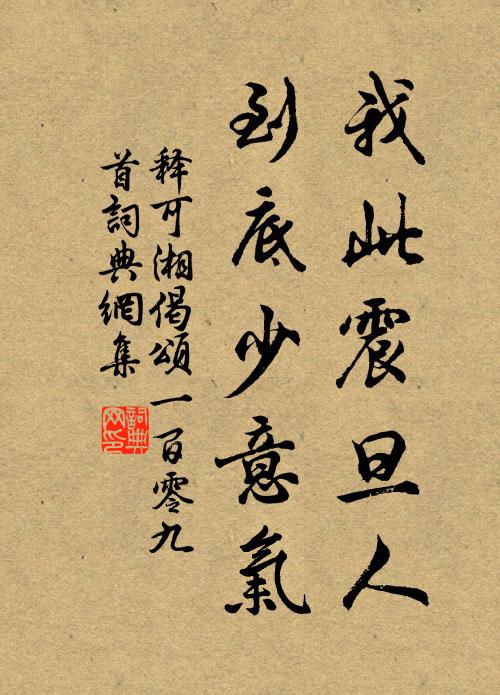 我此震旦人
到底少意氣
释可湘偈頌一百零九
首詞典網集
詞典网印